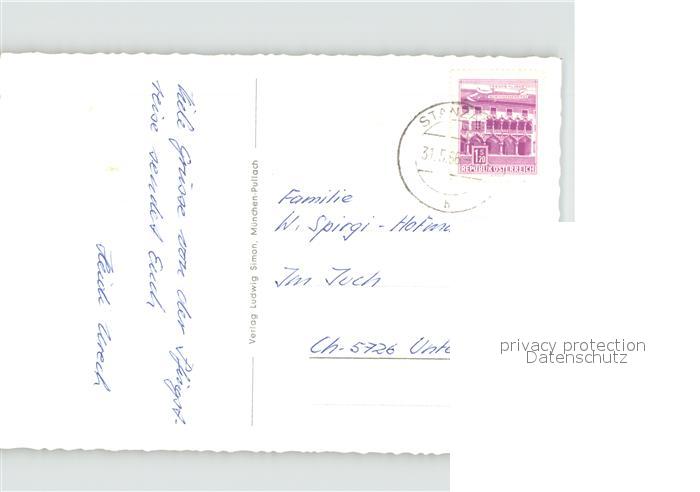 Viele Grüsse von der Pfingst-
reise sendet Euch
Heidi Urech
Verlag Ludwig Simon, München-Pullach
STANZ
31.5.66
h
1 S 20
REPUBLIK ÖSTERREICH
Familie
W. Spirgi-Hofma
Im Juch
CH-5726 Unte
privacy protection
Datenschutz